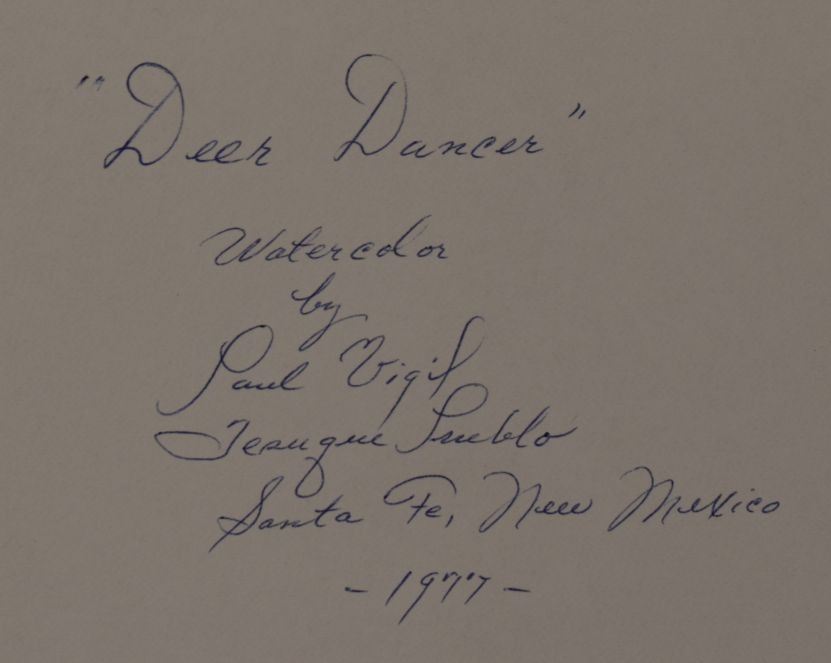 "Deer Dancer"
Watercolor
by
Paul Vigil
Tesuque Pueblo
Santa Fe, New Mexico
- 1977 -